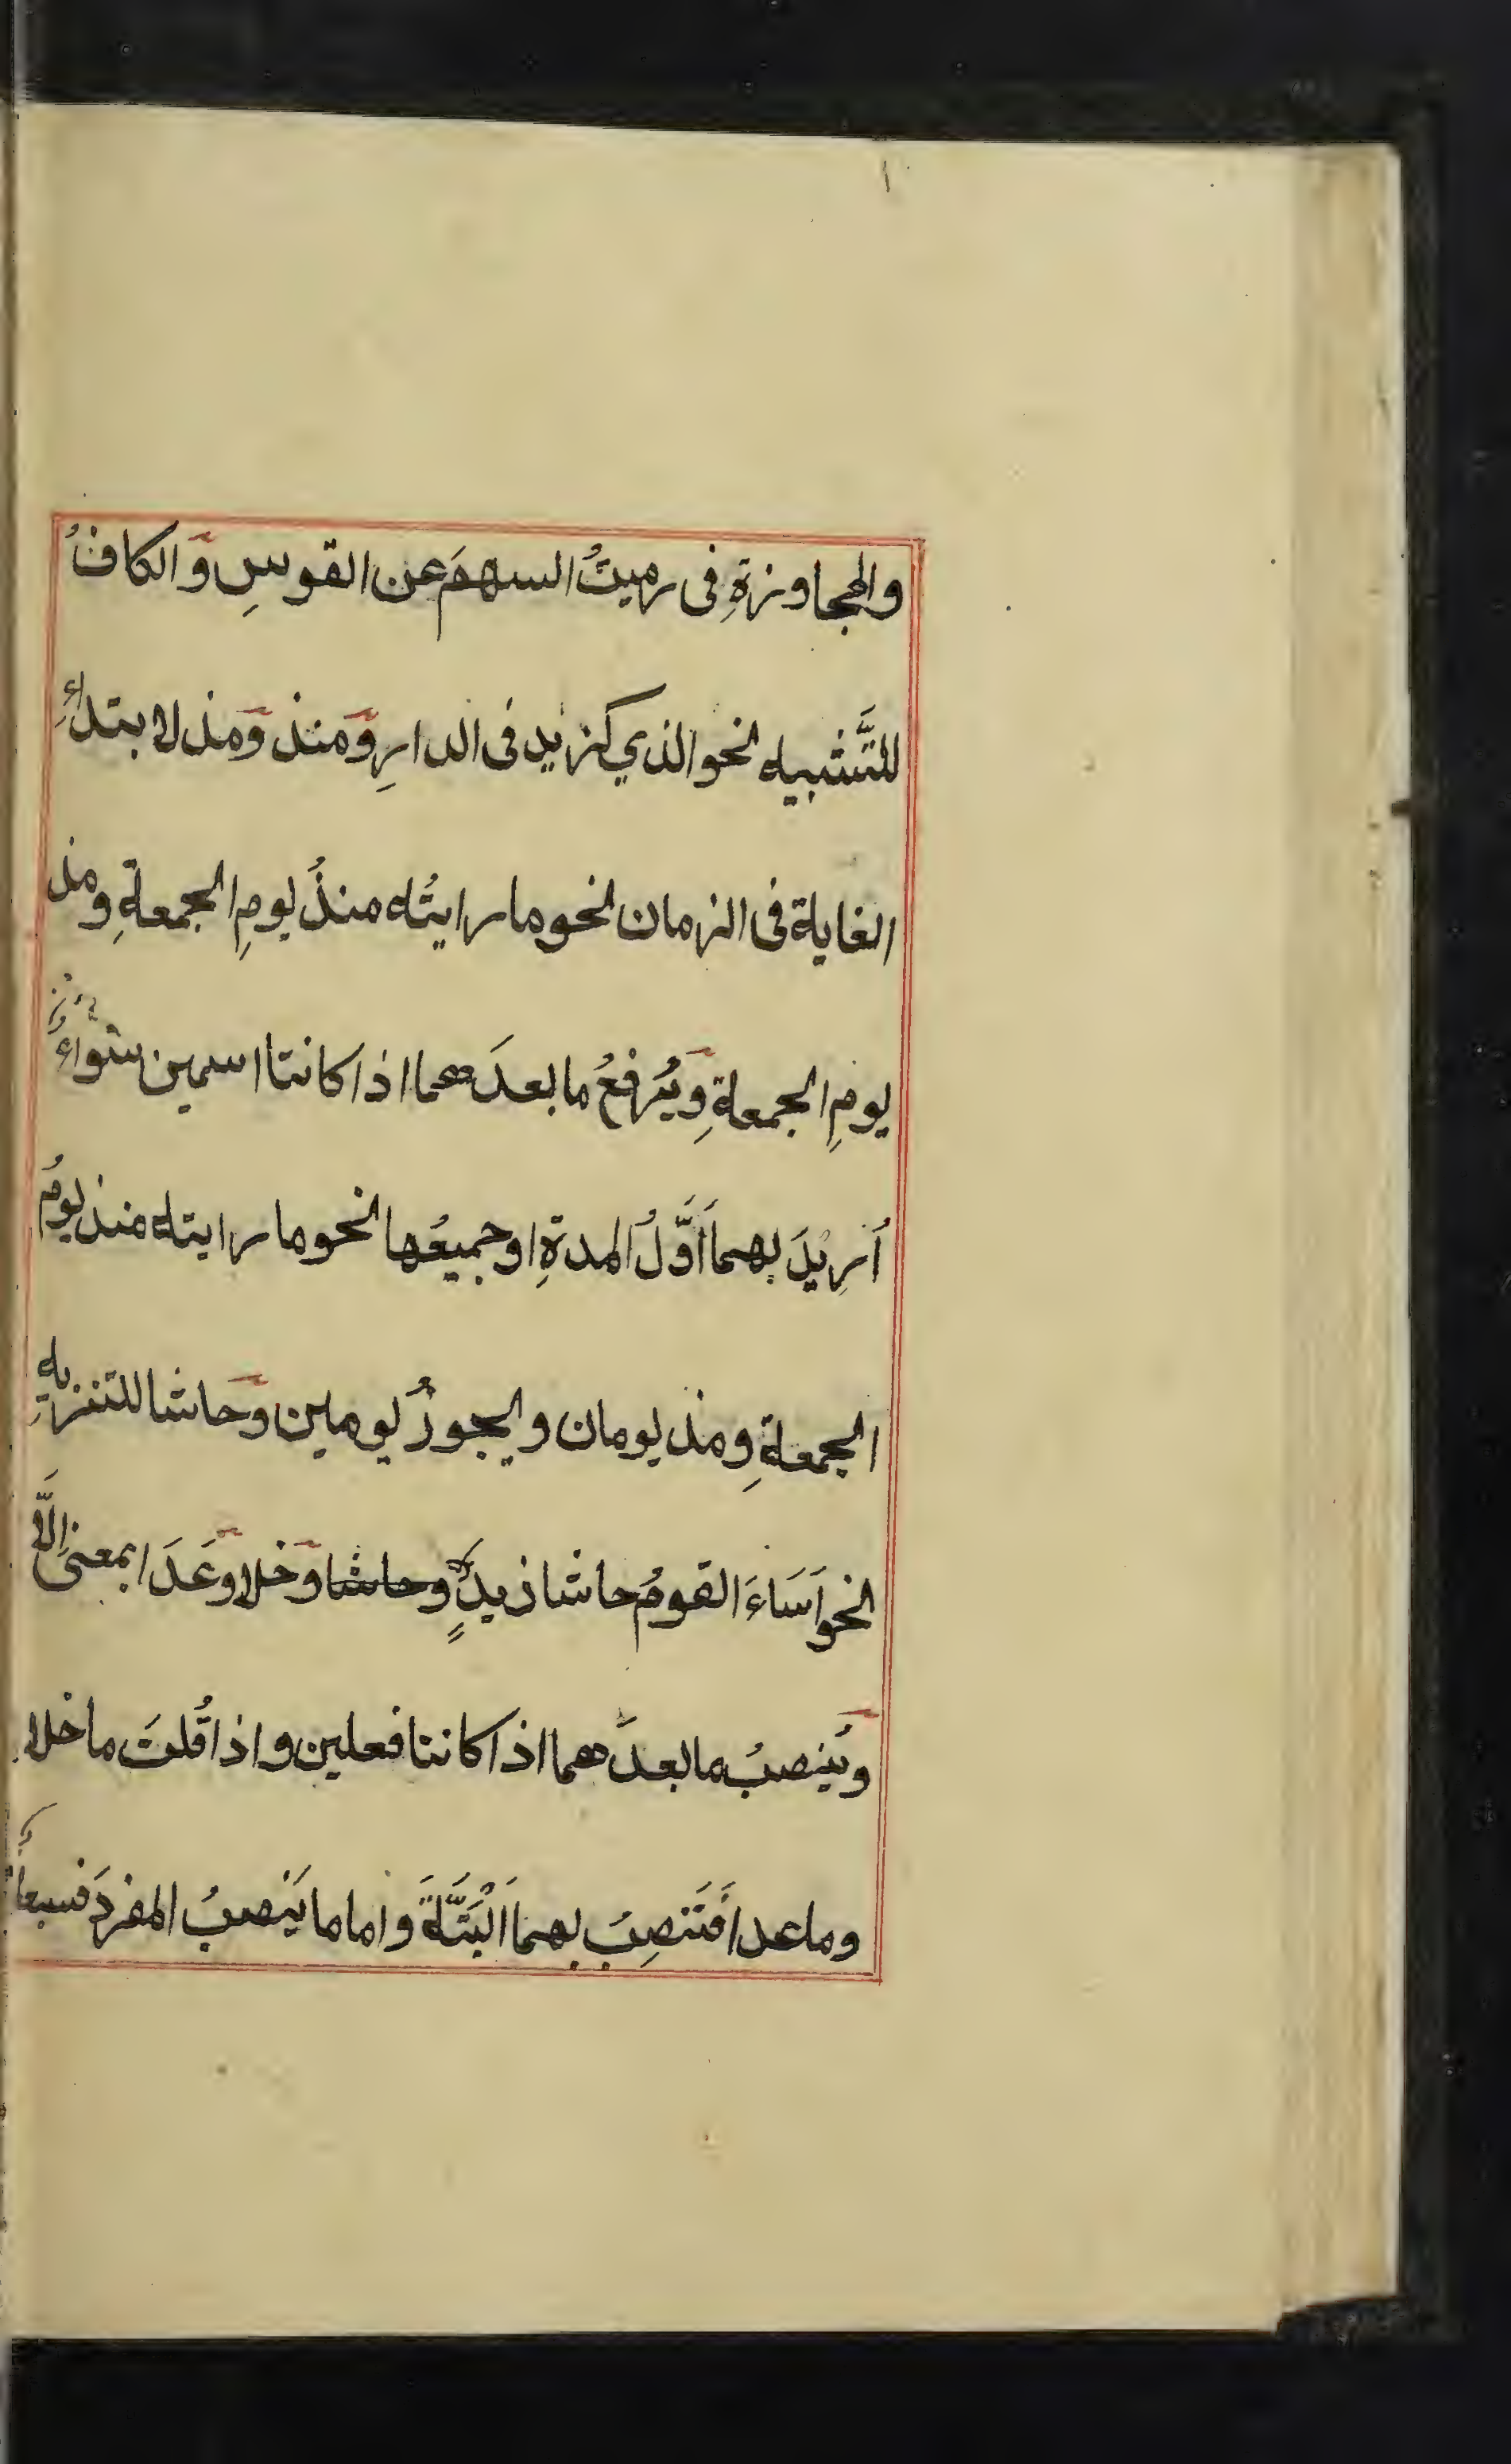 ١
والمجاوزةِ فى رميتُ السهمَ عن القوسِ وَالكافُ
للتَّشبيه نحو الذي كزيد فى الدارِ وَمنذ وَمذ لابتداءِ
الغاية فى الزمان نحو ما رايتُه منذُ يومِ الجمعةِ ومذ
يومِ الجمعةِ وَيُرفعُ ما بعدَهما اذا كانتا اسمين سَواءٌ
اُرِيدَ بهما اَوَّلُ المدةِ او جميعُها نحو ما رايته منذ يومُ
الجمعةِ ومذ يومان ويجوزُ يومين وَحاشا للتنزيهِ
نحو اَسَاءَ القومُ حاشا زيدٍ وحاشا وخلا وعَدَا بمعنى اِلَّا
ويُنصبُ ما بعدَهما اذا كانتا فعلين واذا قُلتَ ما خلا
وما عدا فَتَنصِبُ بهما اَلْبَتَّةَ واما ما يَنصبُ المفردَ فسبعةٌ